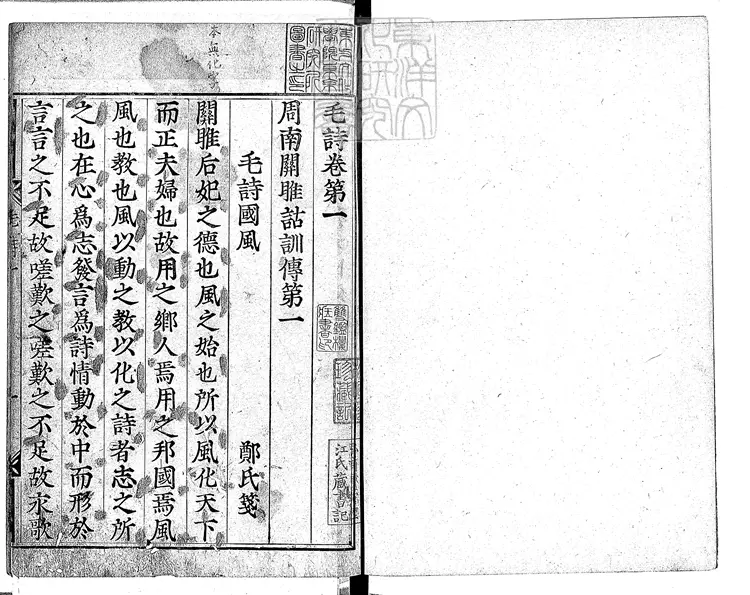 毛詩卷第一
周南關雎詁訓傳第一
毛詩國風
鄭氏箋
關雎后妃之德也風之始也所以風化天下
而正夫婦也故用之鄉人焉用之邦國焉風
風也教也風以動之教以化之詩者志之所
之也在心為志發言為詩情動於中而形於
言言之不足故嗟歎之嗟歎之不足故永歌
珍藏記
江氏藏書記